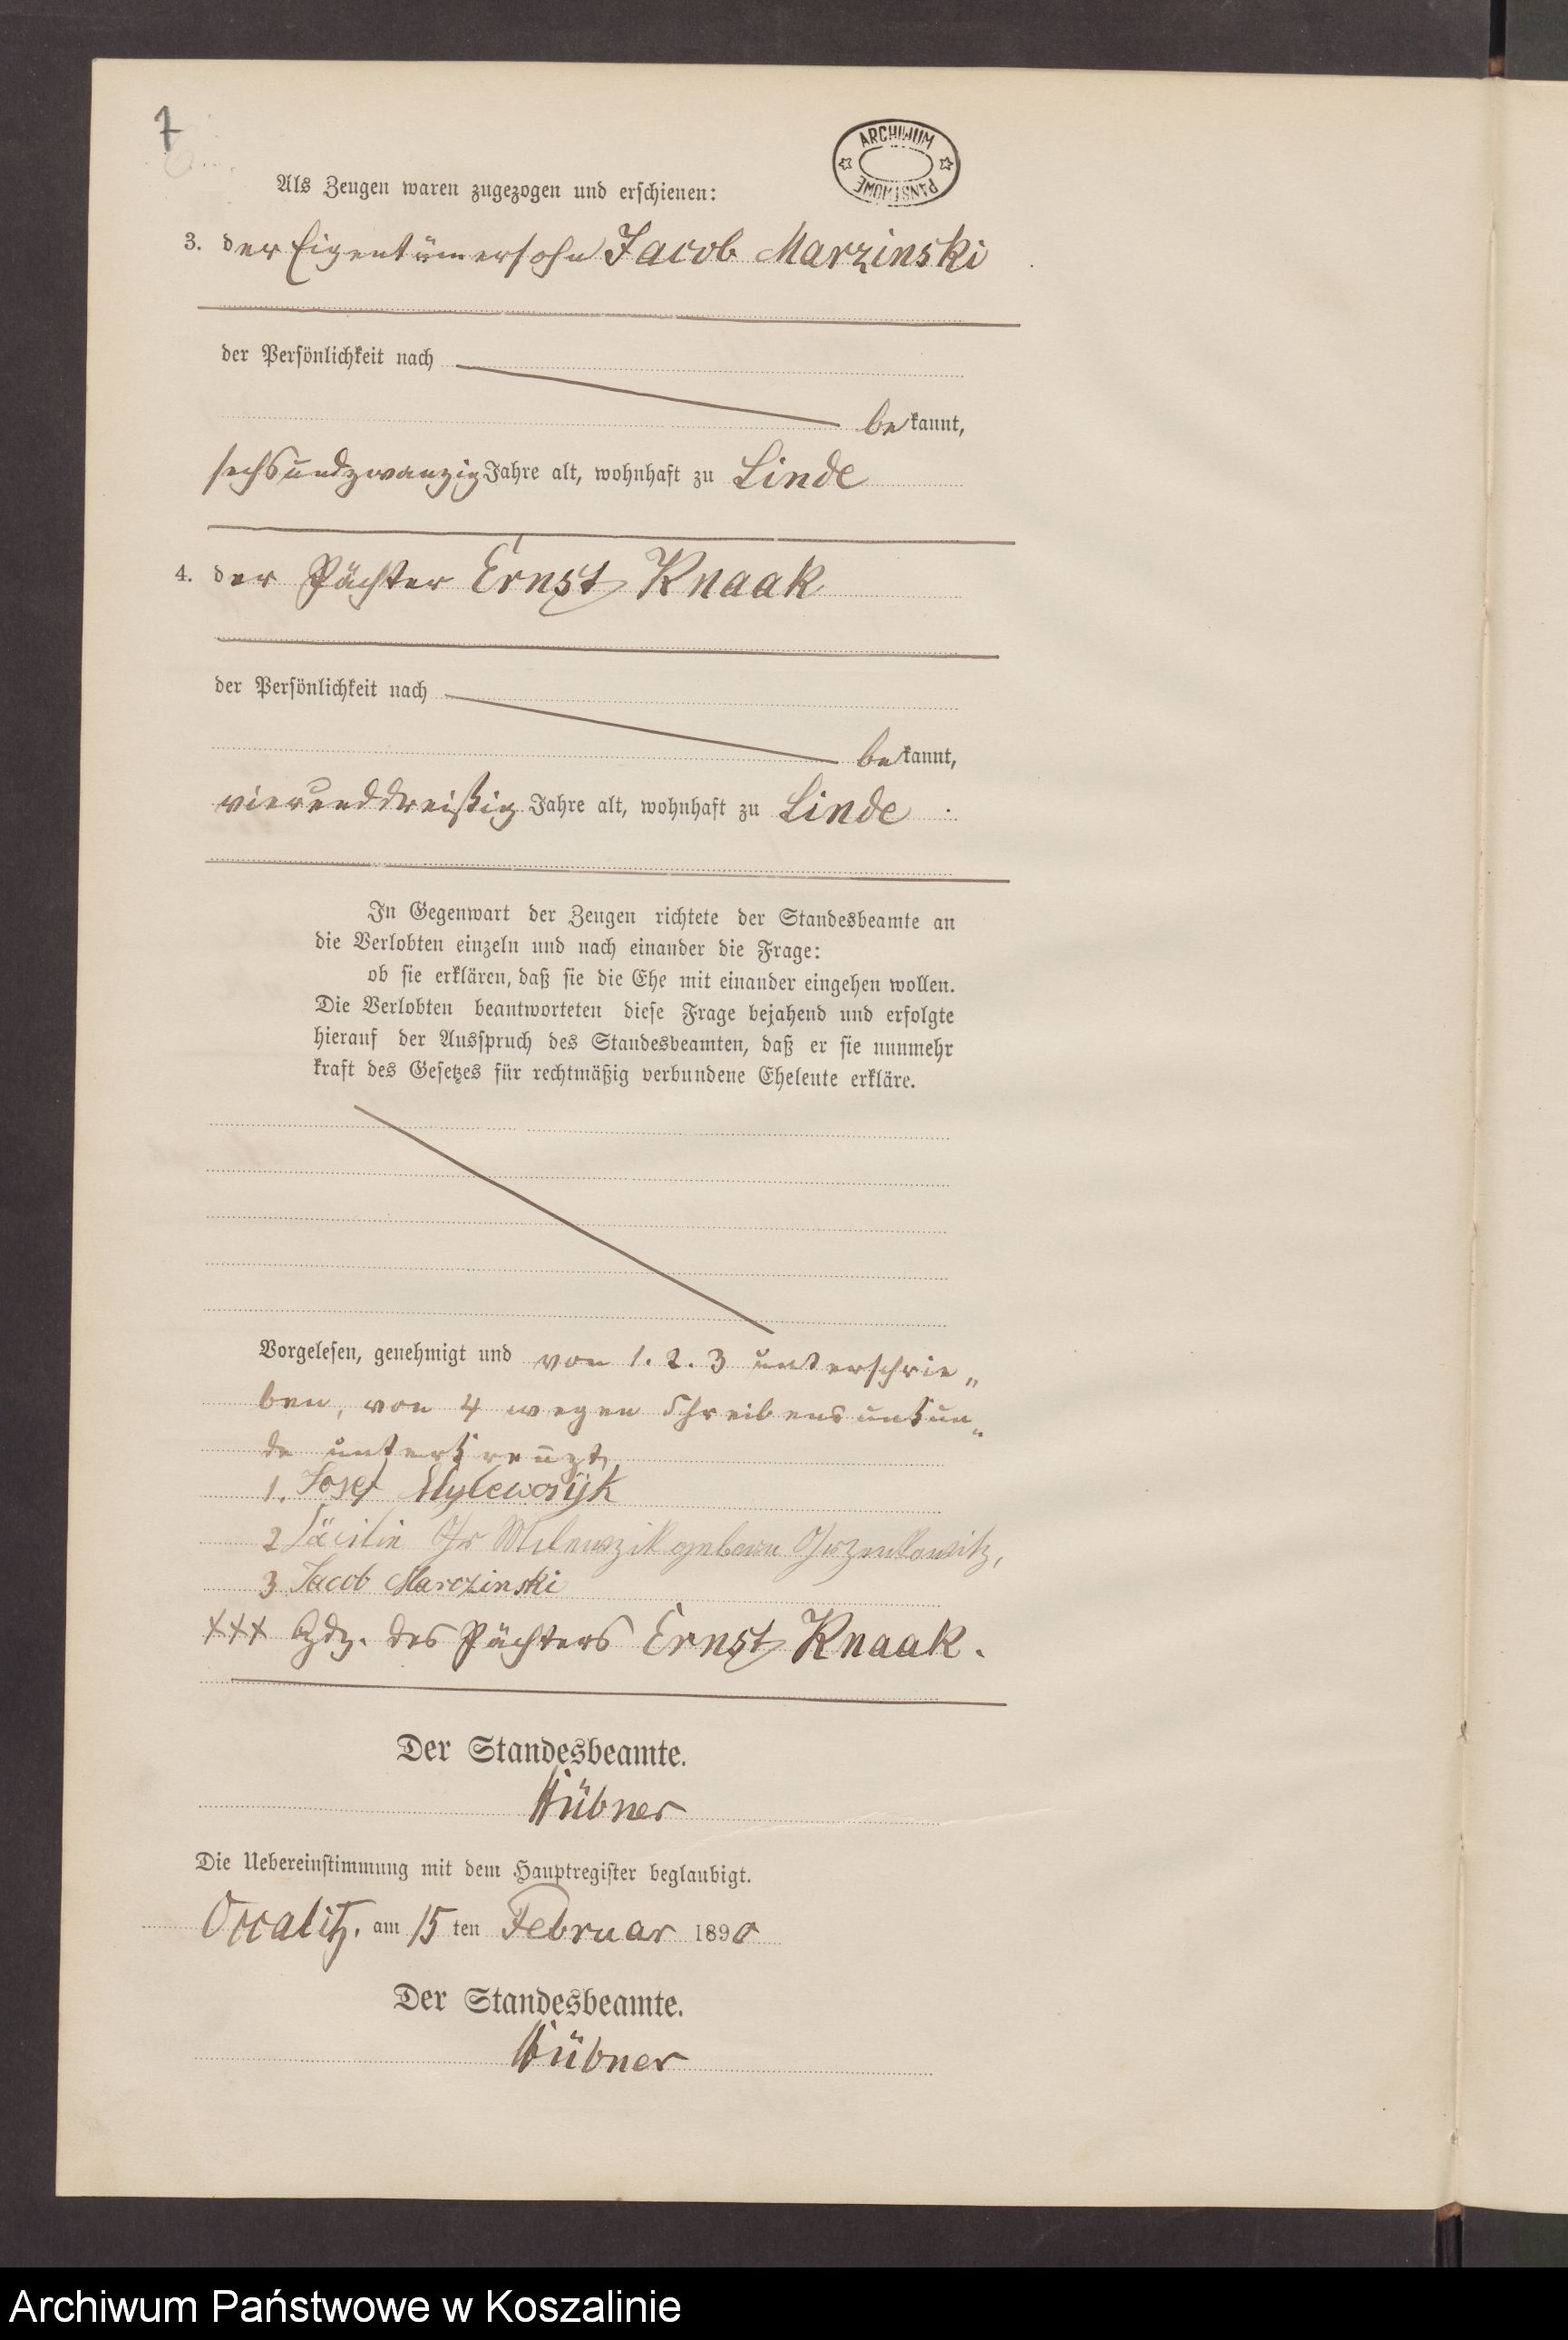 7
ARCHIWUM PAŃSTWOWE
Als Zeugen waren zugezogen und erschienen:
3. der Eigentümersohn Jacob Marzinski
der Persönlichkeit nach
bekannt,
sechsundzwanzig Jahre alt, wohnhaft zu Linde
4. der Pächter Ernst Knaak
der Persönlichkeit nach
bekannt,
vierunddreißig Jahre alt, wohnhaft zu Linde
In Gegenwart der Zeugen richtete der Standesbeamte an
die Verlobten einzeln und nach einander die Frage:
ob sie erklären, daß sie die Ehe mit einander eingehen wollen.
Die Verlobten beantworteten diese Frage bejahend und erfolgte
hierauf der Ausspruch des Standesbeamten, daß er sie nunmehr
kraft des Gesetzes für rechtmäßig verbundene Eheleute erkläre.
Vorgelesen, genehmigt und von 1. 2. 3 unterschrie„
ben, von 4 wegen Schreibensunkun„
de unterkreuzt,
1. Josef
2 Cäcilie geborn
3 Jacob Marczinski
+++ Hdz. des Pächters Ernst Knaak.
Der Standesbeamte.
Hübner
Die Uebereinstimmung mit dem Hauptregister beglaubigt.
Occalitz, am 15 ten Februar 1890
Der Standesbeamte.
Hübner
Archiwum Państwowe w Koszalinie